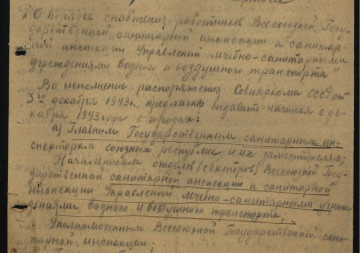 "О порядке снабжения работников Всесоюзной Госу-
дарственной санитарной инспекции и санитар-
ной инспекции Управлений лечебно-санитарными
учреждениями водного и воздушного транспорта"
Во исполнение распоряжения Совнаркома СССР от
3го декабря 1943г. предлагаю выдавать начиная с де-
кабря 1943 года в городах:
а) Главным Государственным санитарным ин-
спекторам союзных республик и их заместителям;
Начальникам отделов (секторов) Всесоюзной Госу-
дарственной санитарной инспекции и санитарной
инспекции Управлений лечебно-санитарными учреж-
дениями водного и воздушного транспорта;
Уполномоченным Всесоюзной Государственной сани-
тарной инспекции